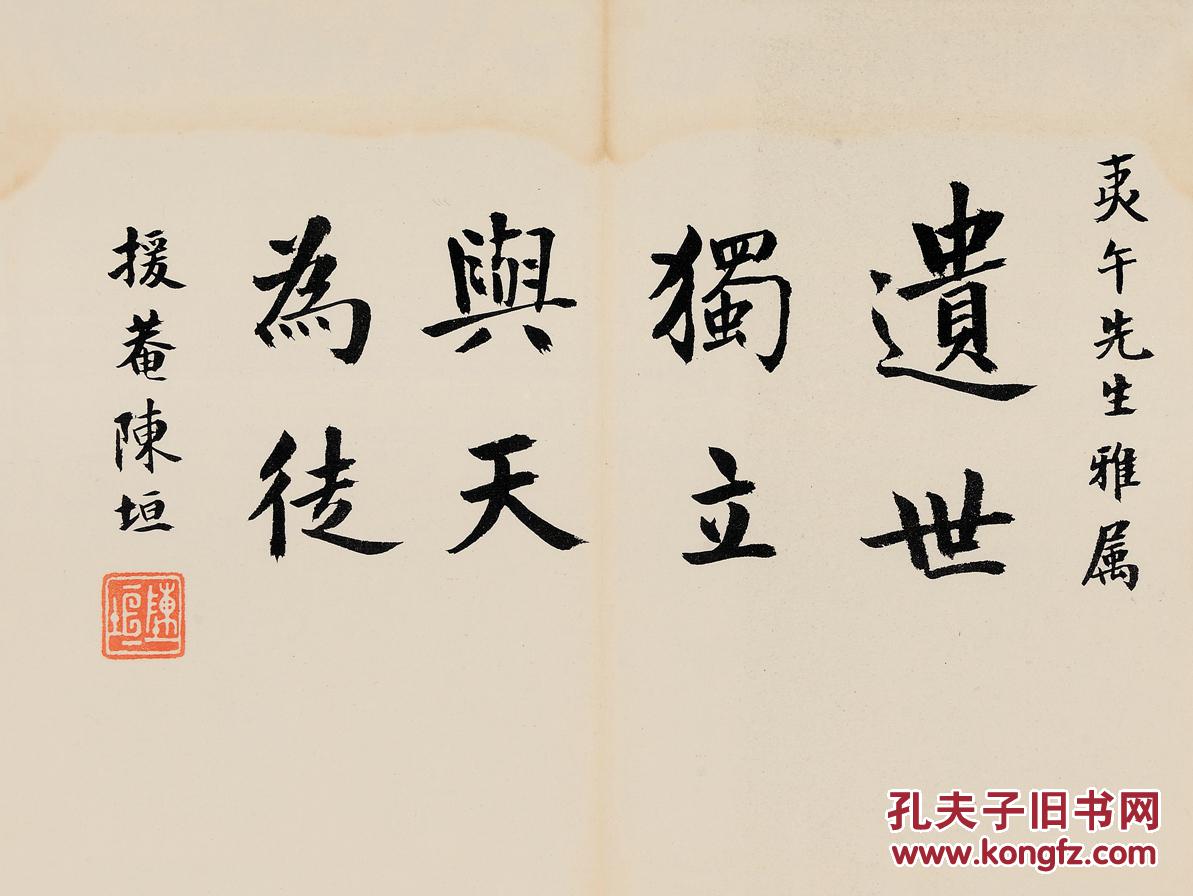 夷午先生雅属
遺世
獨立
與天
為徒
援菴陳垣
陳垣
孔夫子旧书网
www.kongfz.com